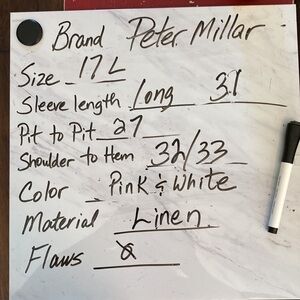 Brand Peter Millar
Size 17 L
Sleeve length Long 31
Pit to Pit 27
Shoulder to Hem 32/33
Color Pink & White
Material Linen
Flaws 0